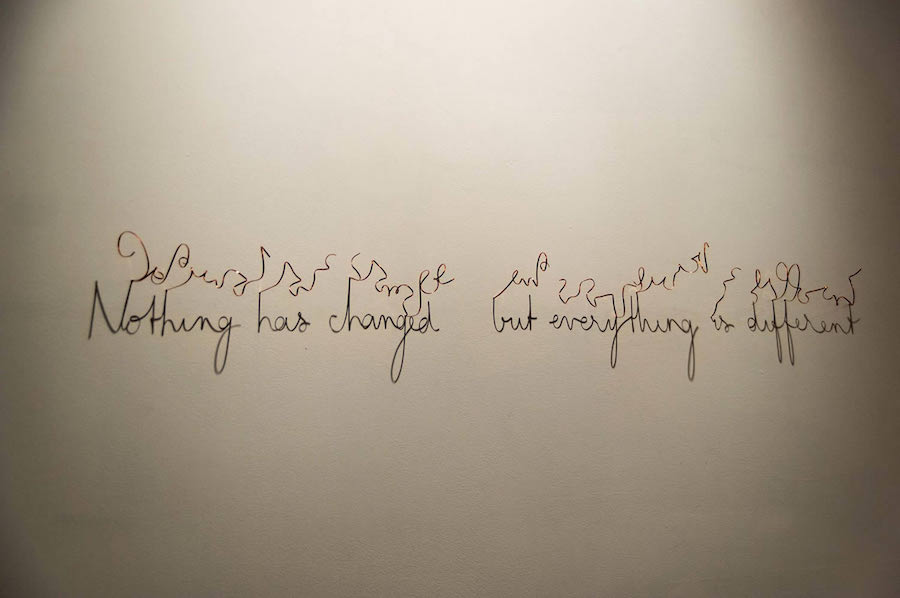 Nothing has changed but everything is different